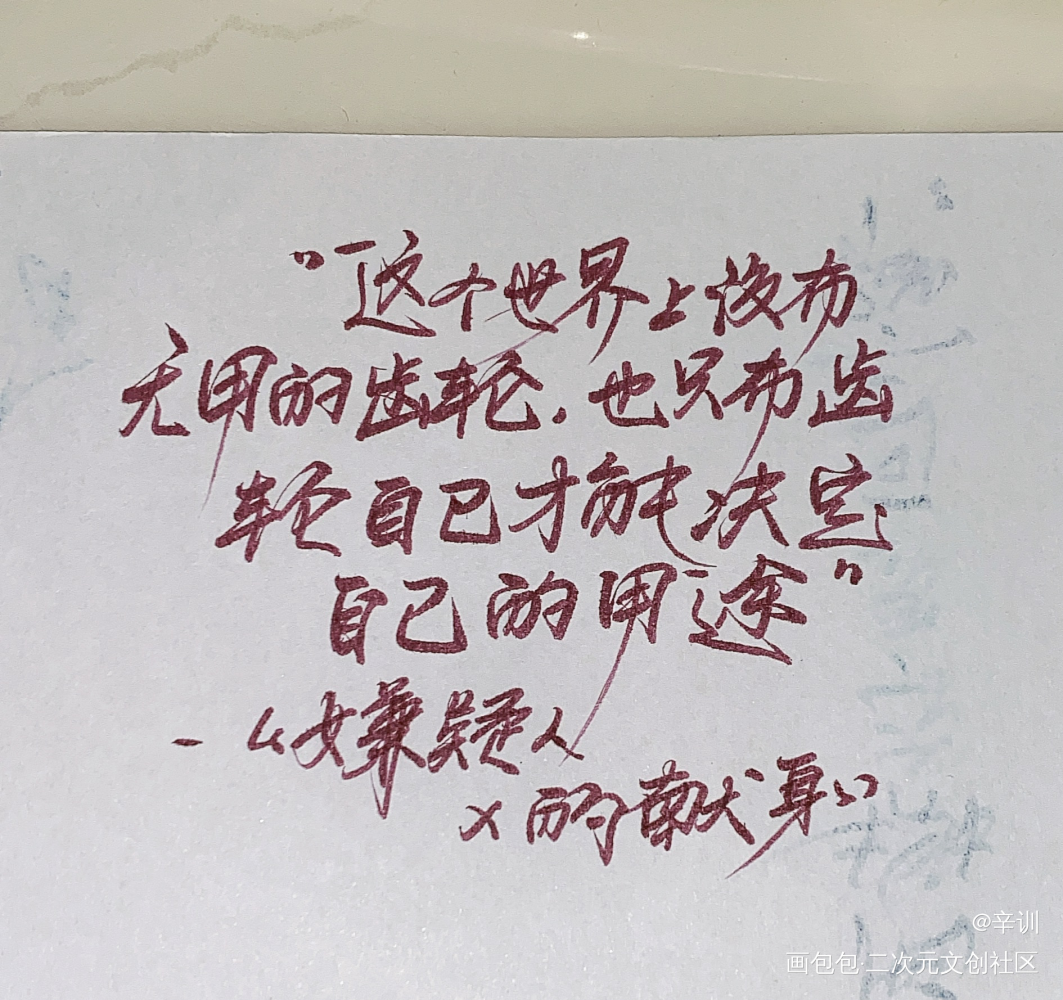 "这个世界上没有
无用的齿轮，也只有齿
轮自己才能决定
自己的用途"
-《嫌疑人
x的献身》
@辛训
画包包·二次元文创社区